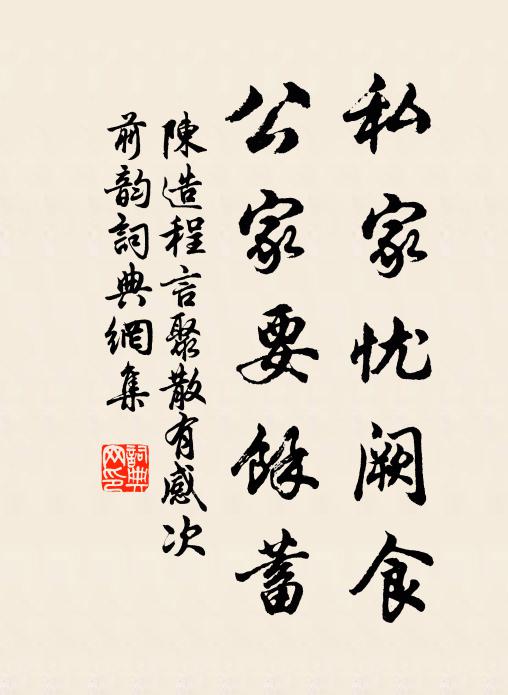 私家忧阙食
公家要馀蓄
陳造程言聚散有感次
前韵詞典網集
詞典网印